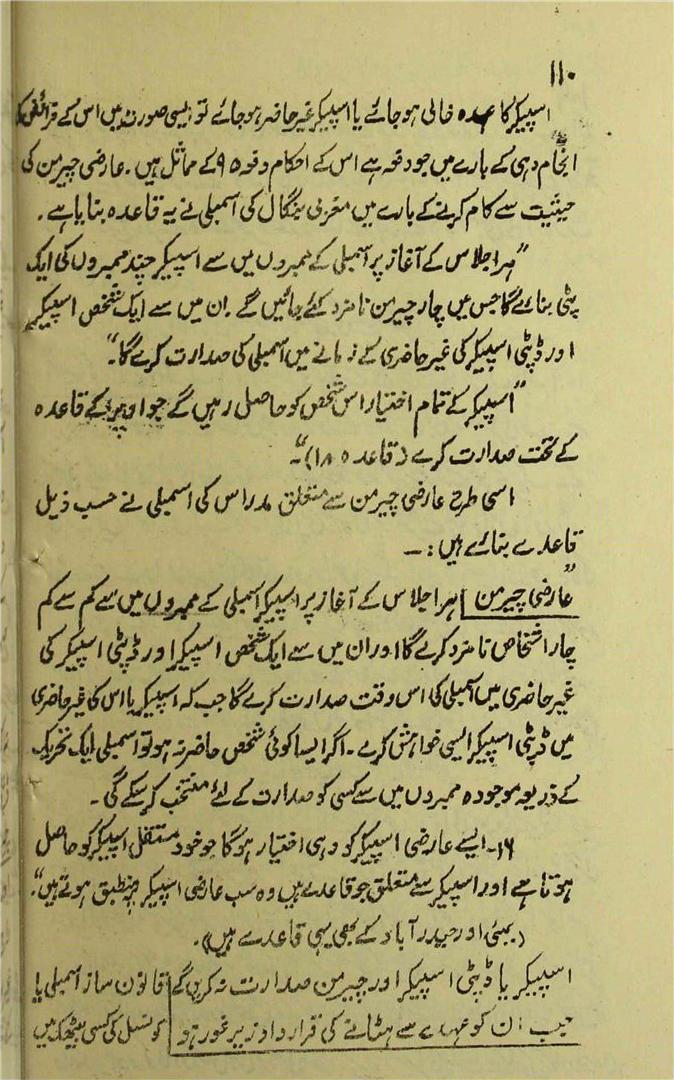 ۱۱۰
اسپیکر کا عہدہ خالی ہو جائے یا اسپیکر غیر حاضر ہو جائے تو ایسی صورت میں اس کے فرائض کی
انجام دہی کے بارے میں جو دفعہ ہے اس کے احکام دفعہ ۹۵ کے مماثل ہیں۔ عارضی چیرمن کی
حیثیت سے کام کرنے کے بارے میں مغربی بنگال کی اسمبلی نے یہ قاعدہ بنایا ہے۔
”ہر اجلاس کے آغاز پر اسمبلی کے ممبروں میں سے اسپیکر چند ممبروں کی ایک
پٹی بنائے گا جس میں چار چیرمن نامزد کئے جائیں گے۔ ان میں سے ایک شخص اسپیکر
اور ڈپٹی اسپیکر کی غیر حاضری کے زمانے میں اسمبلی کی صدارت کرے گا۔“
”اسپیکر کے تمام اختیار اس شخص کو حاصل رہیں گے جو اوپر کے قاعدہ
کے تحت صدارت کرے (قاعدہ ۱۸)“۔
اسی طرح عارضی چیرمن سے متعلق مدراس کی اسمبلی نے حسب ذیل
قاعدے بنائے ہیں:۔
”عارضی چیرمن | ہر اجلاس کے آغاز پر اسپیکر اسمبلی کے ممبروں میں سے کم سے کم
چار اشخاص نامزد کرے گا اور ان میں سے ایک شخص اسپیکر اور ڈپٹی اسپیکر کی
غیر حاضری میں اسمبلی کی اس وقت صدارت کرے گا جب کہ اسپیکر یا اس کی غیر حاضری
میں ڈپٹی اسپیکر ایسی خواہش کرے۔ اگر ایسا کوئی شخص حاضر نہ ہو تو اسمبلی ایک تحریک
کے ذریعہ موجودہ ممبروں میں سے کسی کو صدارت کے لئے منتخب کر سکے گی۔
۱۶۔ ایسے عارضی اسپیکر کو وہی اختیار ہوگا جو خود مستقل اسپیکر کو حاصل
ہوتا ہے اور اسپیکر سے متعلق جو قاعدے ہیں وہ سب عارضی اسپیکر پر منطبق ہوتے ہیں“۔
(بمبئی اور حیدرآباد کے بھی یہی قاعدے ہیں)۔
اسپیکر یا ڈپٹی اسپیکر اور چیرمن صدارت نہ کریں گے | قانون ساز اسمبلی یا
جب ان کو عہدے سے ہٹانے کی قرارداد زیر غور ہو | کونسل کی کسی بیٹھک میں